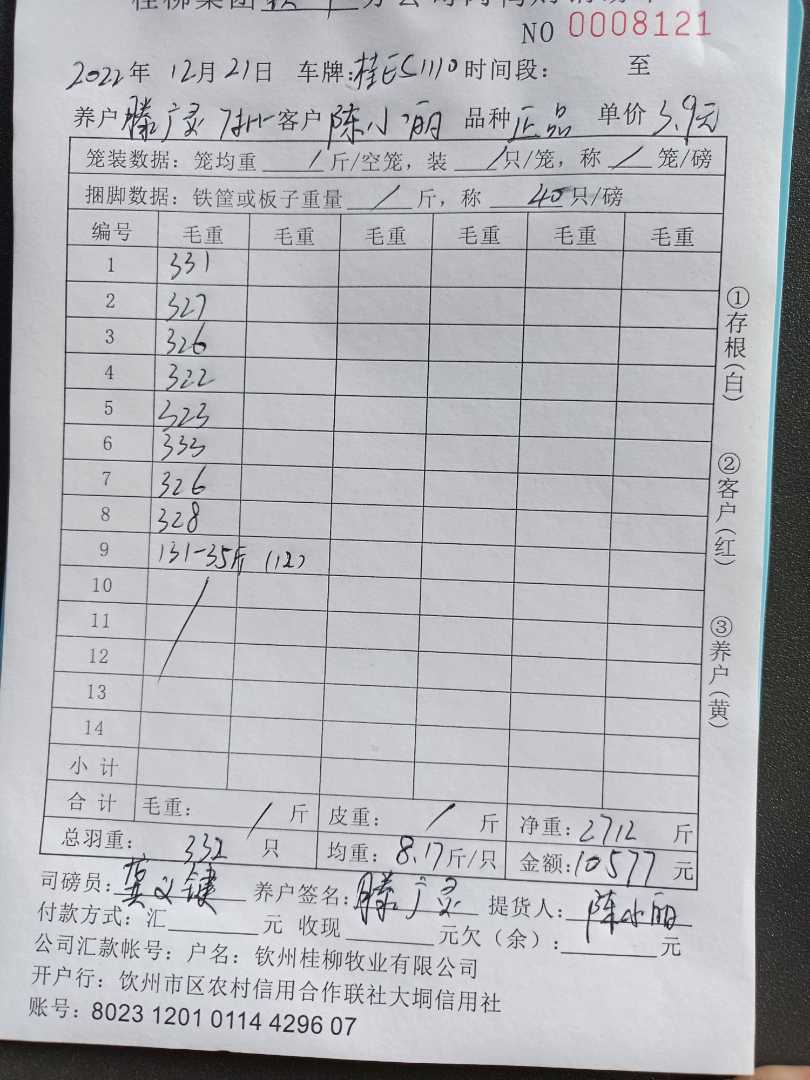 桂柳集团
NO 0008121
2022年 12月21日 车牌:桂E51110 时间段: 至
养户 滕广灵 客户 陈小丽 品种 正品 单价 3.9元
笼装数据: 笼均重 / 斤/空笼, 装 / 只/笼, 称 / 笼/磅
捆脚数据: 铁筐或板子重量 / 斤, 称 40 只/磅
编号 毛重 毛重 毛重 毛重 毛重 毛重
1 331
2 327
3 326
4 322
5 323
6 333
7 326
8 328
9 131-35斤 (12)
10
11
12
13
14
小计
合计 毛重: / 斤 皮重: / 斤 净重: 2712 斤
总羽重: 332 只 均重: 8.17斤/只 金额: 10577 元
司磅员: 养户签名: 滕广灵 提货人: 陈小丽
付款方式: 汇 元 收现 元欠(余): 元
公司汇款帐号: 户名: 钦州桂柳牧业有限公司
开户行: 钦州市区农村信用合作联社大垌信用社
账号: 8023 1201 0114 4296 07
①存根(白)
②客户(红)
③养户(黄)